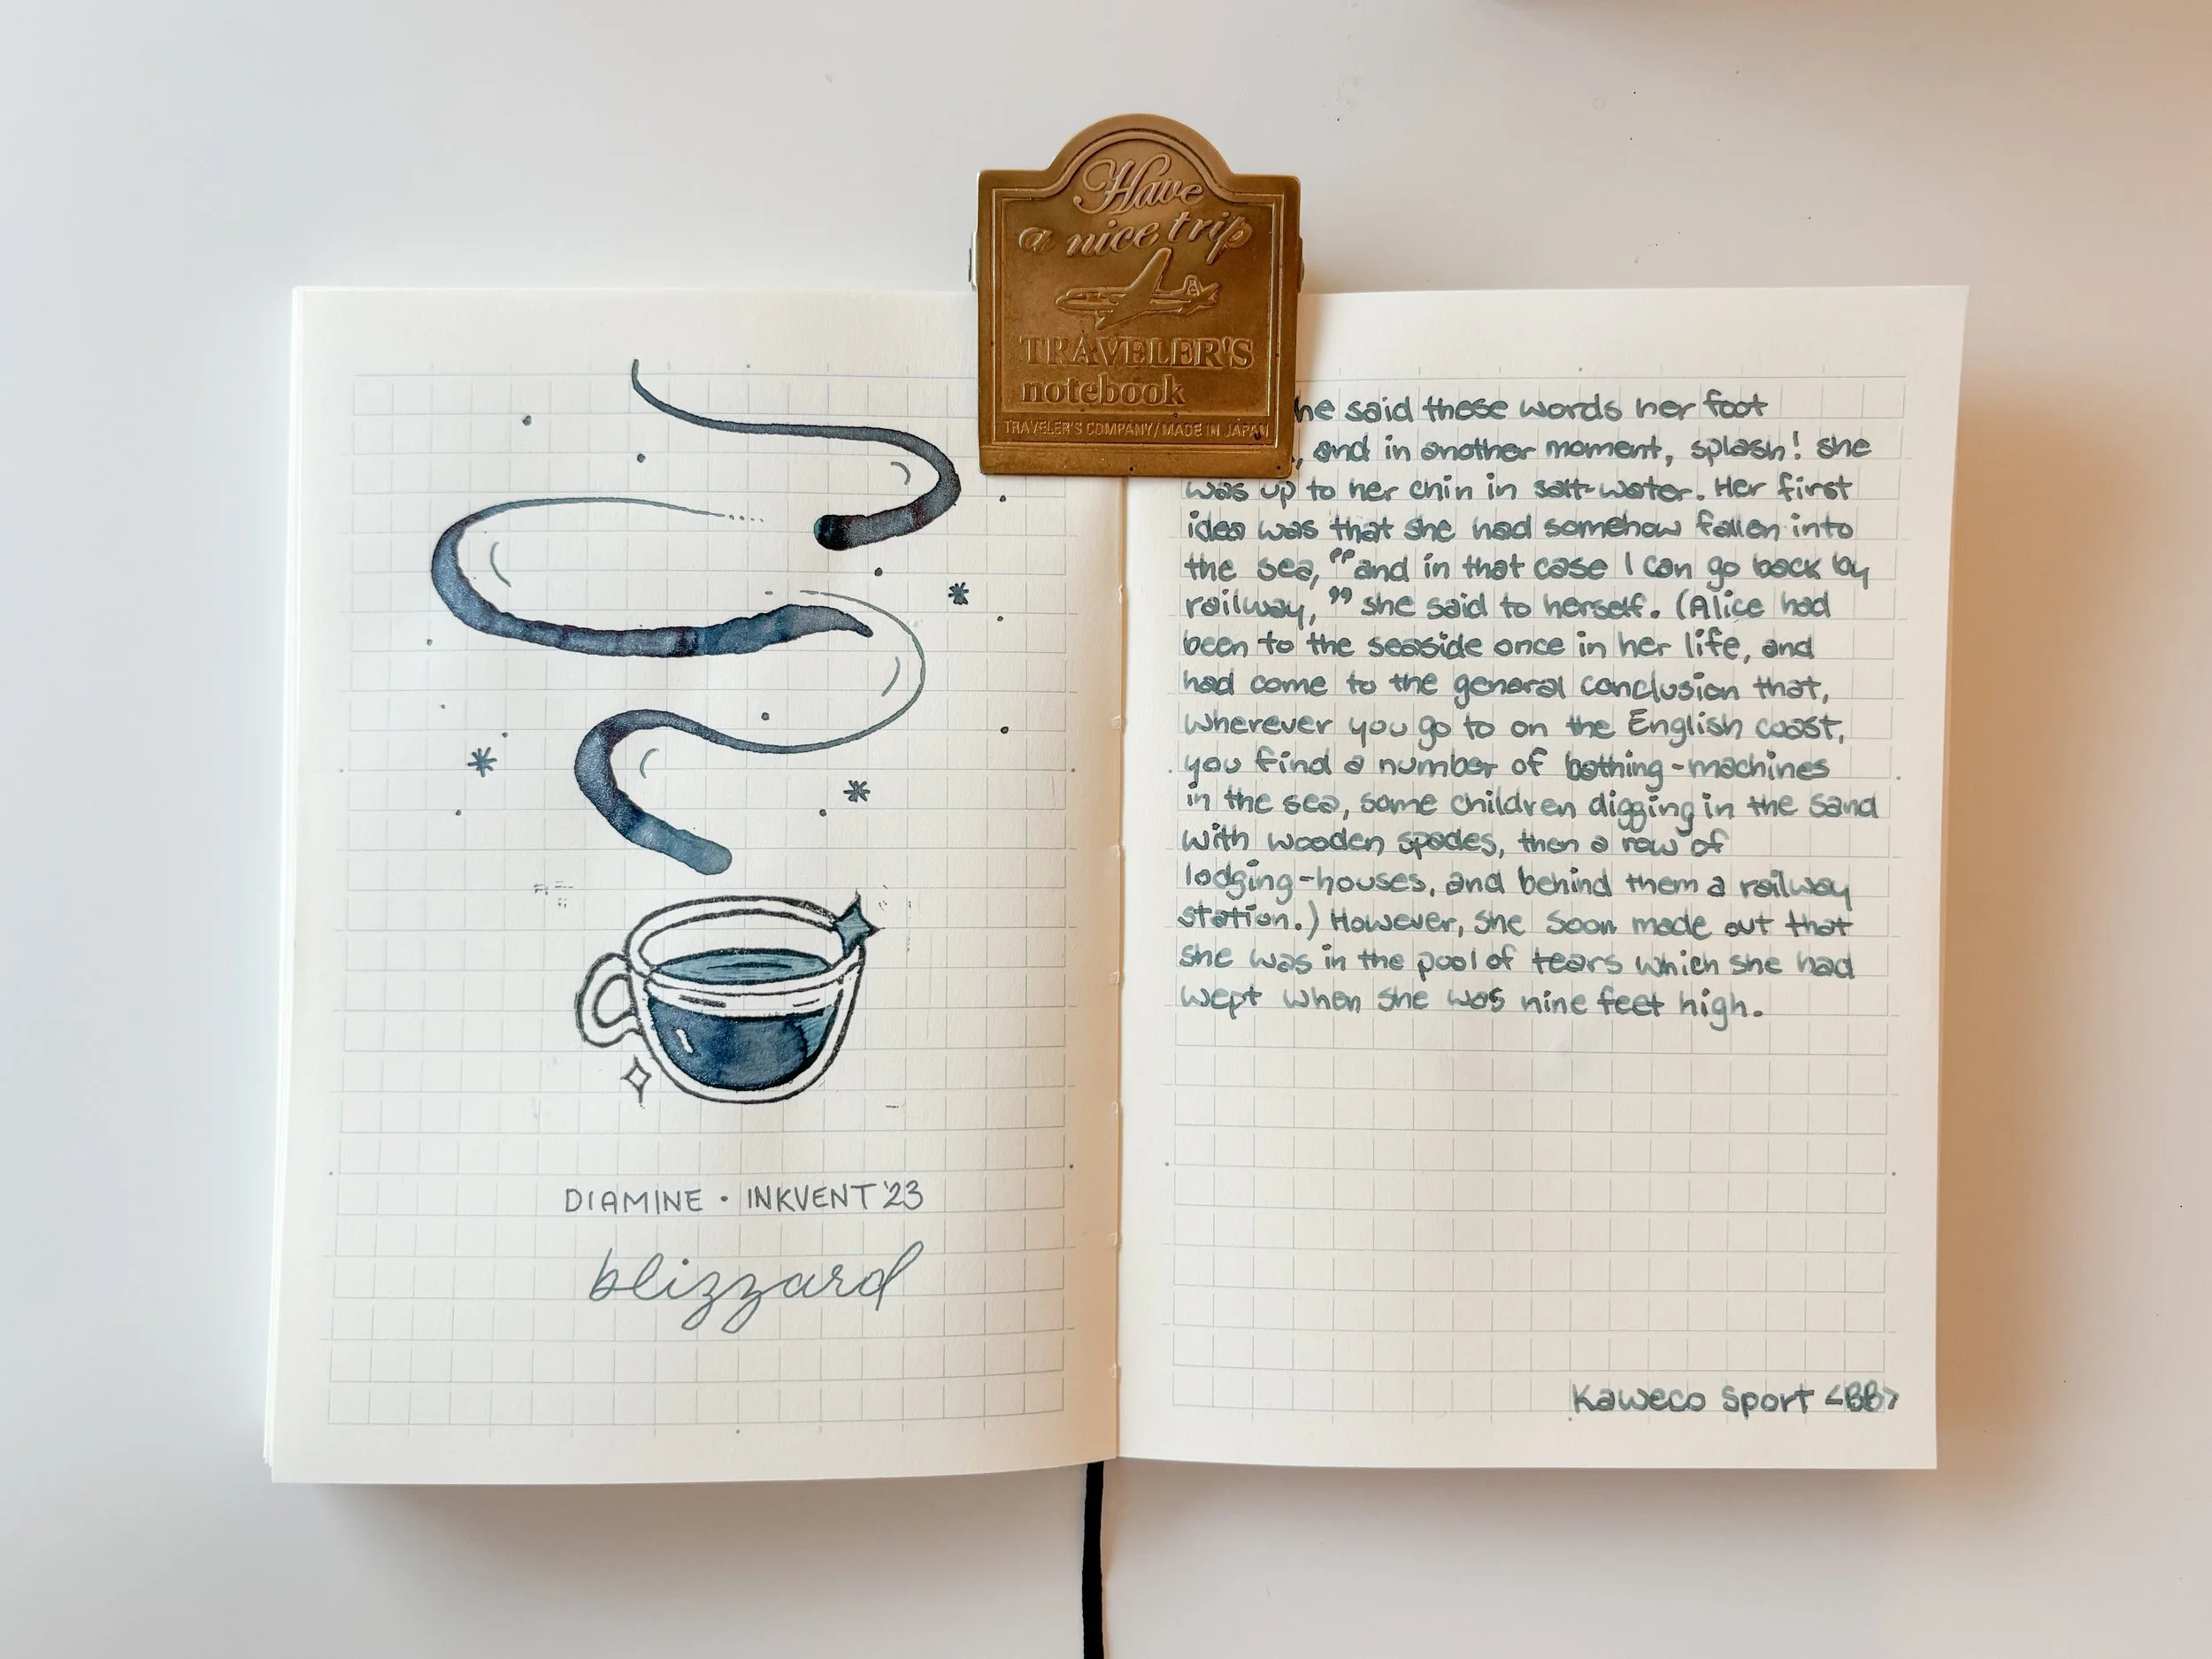 Have
a nice trip
TRAVELER'S
notebook
TRAVELER'S COMPANY/MADE IN JAPAN
DIAMINE · INKVENT '23
blizzard
he said these words her foot
, and in another moment, splash! she
was up to her chin in salt-water. Her first
idea was that she had somehow fallen into
the sea, "and in that case I can go back by
railway," she said to herself. (Alice had
been to the seaside once in her life, and
had come to the general conclusion that,
wherever you go to on the English coast,
you find a number of bathing-machines
in the sea, some children digging in the sand
with wooden spades, then a row of
lodging-houses, and behind them a railway
station.) However, she soon made out that
she was in the pool of tears which she had
wept when she was nine feet high.
Kaweco Sport <BB>